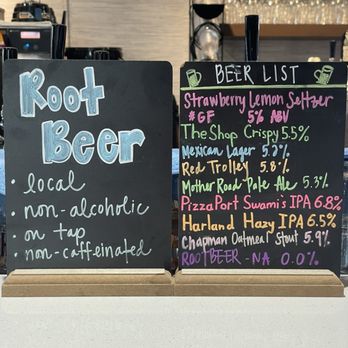 Root
Beer
• local
• non-alcoholic
• on tap
• non-caffeinated
BEER LIST
Strawberry Lemon Seltzer
*GF 5% ABV
The Shop Crispy 5.5%
Mexican Lager 5.2%
Red Trolley 5.8%
Mother Road Pale Ale 5.3%
Pizza Port Swami's IPA 6.8%
Harland Hazy IPA 6.5%
Chapman Oatmeal Stout 5.9%
ROOTBEER -NA 0.0%